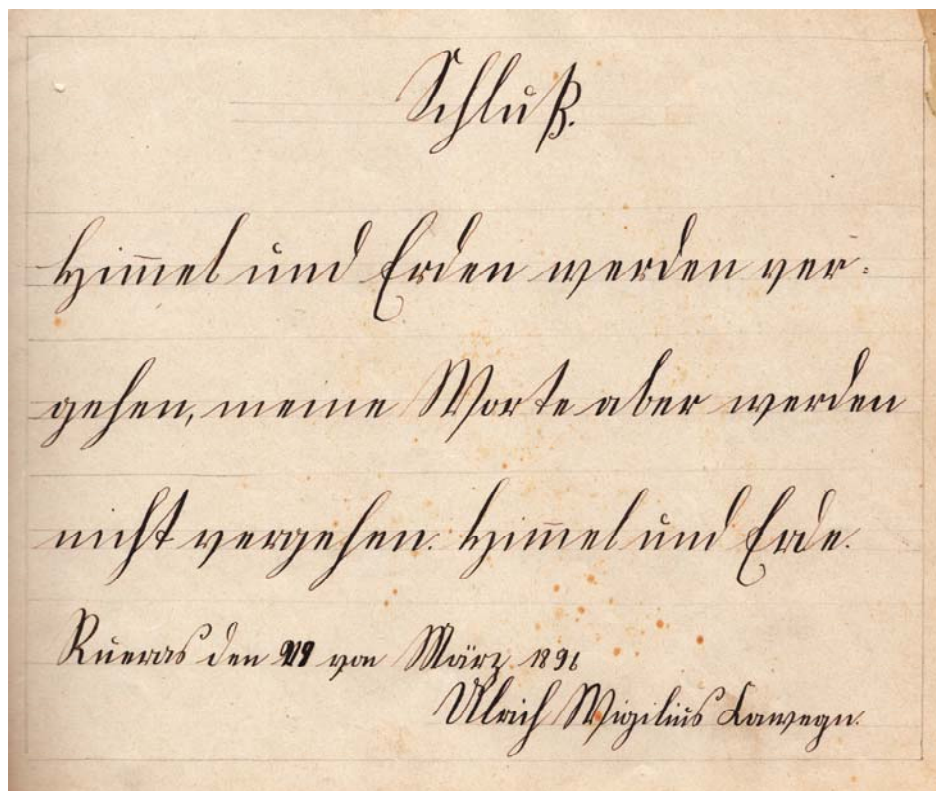 Schluß.
Him̄el und Erden werden ver=
gehen, meine Worte aber werden
nicht vergehen. Him̄el und Erde.
Rueras den von März 1896
Ulrich Wigilius Cawegn.